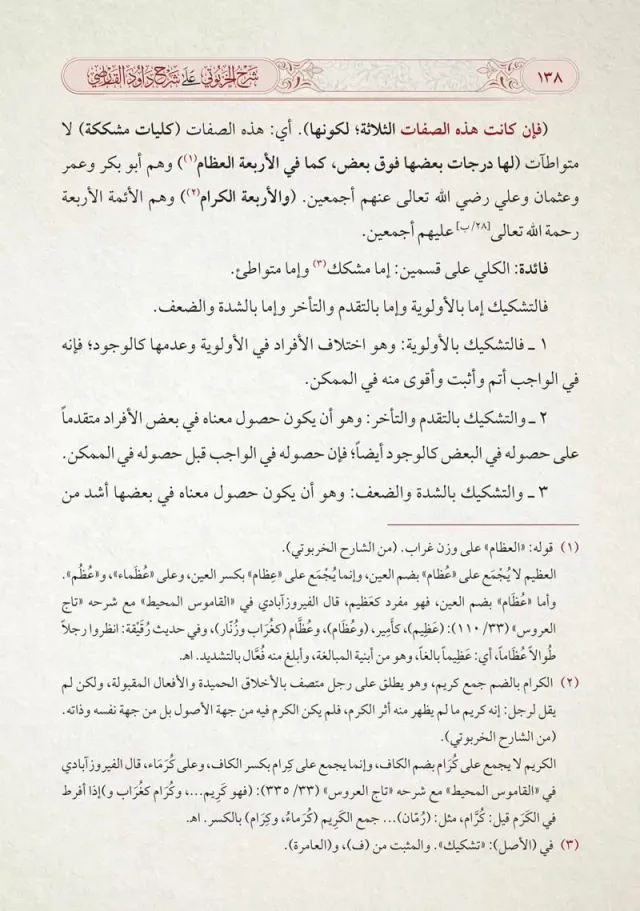 ١٣٨
شرح الخربوتي على شرح داود القارصي
(فإن كانت هذه الصفات الثلاثة؛ لكونها). أي: هذه الصفات (كليات مشككة) لا
متواطآت (لها درجات بعضها فوق بعض، كما في الأربعة العظام(١)) وهم أبو بكر وعمر
وعثمان وعلي رضي الله تعالى عنهم أجمعين. (والأربعة الكرام(٢)) وهم الأئمة الأربعة
رحمة الله تعالى[٢٨/ب] عليهم أجمعين.
فائدة: الكلي على قسمين: إما مشكك(٣) وإما متواطئ.
فالتشكيك إما بالأولوية وإما بالتقدم والتأخر وإما بالشدة والضعف.
١ ـ فالتشكيك بالأولوية: وهو اختلاف الأفراد في الأولوية وعدمها كالوجود؛ فإنه
في الواجب أتم وأثبت وأقوى منه في الممكن.
٢ ـ والتشكيك بالتقدم والتأخر: وهو أن يكون حصول معناه في بعض الأفراد متقدماً
على حصوله في البعض كالوجود أيضاً؛ فإن حصوله في الواجب قبل حصوله في الممكن.
٣ ـ والتشكيك بالشدة والضعف: وهو أن يكون حصول معناه في بعضها أشد من
(١) قوله: «العظام» على وزن غراب. (من الشارح الخربوتي).
العظيم لا يُجْمَع على «عُظام» بضم العين، وإنما يُجْمَع على «عِظام» بكسر العين، وعلى «عُظَماء»، و«عُظُم».
وأما «عُظَام» بضم العين، فهو مفرد كعَظيم، قال الفيروزآبادي في «القاموس المحيط» مع شرحه «تاج
العروس» (٣٣/ ١١٠): (عَظِيم)، كأَمِير، (وعُظَام)، وعُظَّام (كغُرَاب وزُنَّار)، وفي حديث رُقَيْقة: انظروا رجلاً
طُوالاً عُظَاماً، أي: عَظِيماً بالغاً، وهو من أبنية المبالغة، وأبلغ منه فُعَّال بالتشديد. اهـ.
(٢) الكرام بالضم جمع كريم، وهو يطلق على رجل متصف بالأخلاق الحميدة والأفعال المقبولة، ولكن لم
يقل لرجل: إنه كريم ما لم يظهر منه أثر الكرم، فلم يكن الكرم فيه من جهة الأصول بل من جهة نفسه وذاته.
(من الشارح الخربوتي).
الكريم لا يجمع على كُرَام بضم الكاف، وإنما يجمع على كِرام بكسر الكاف، وعلى كُرَمَاء، قال الفيروزآبادي
في «القاموس المحيط» مع شرحه «تاج العروس» (٣٣/ ٣٣٥): (فهو كَرِيم...، وكُرَام كغُرَاب و)إذا أفرط
في الكَرَم قيل: كُرَّام، مثل: (رُمَّان)... جمع الكَرِيم (كُرَماءُ، وكِرَام) بالكسر. اهـ.
(٣) في (الأصل): «تشكيك». والمثبت من (ف)، و(العامرة).